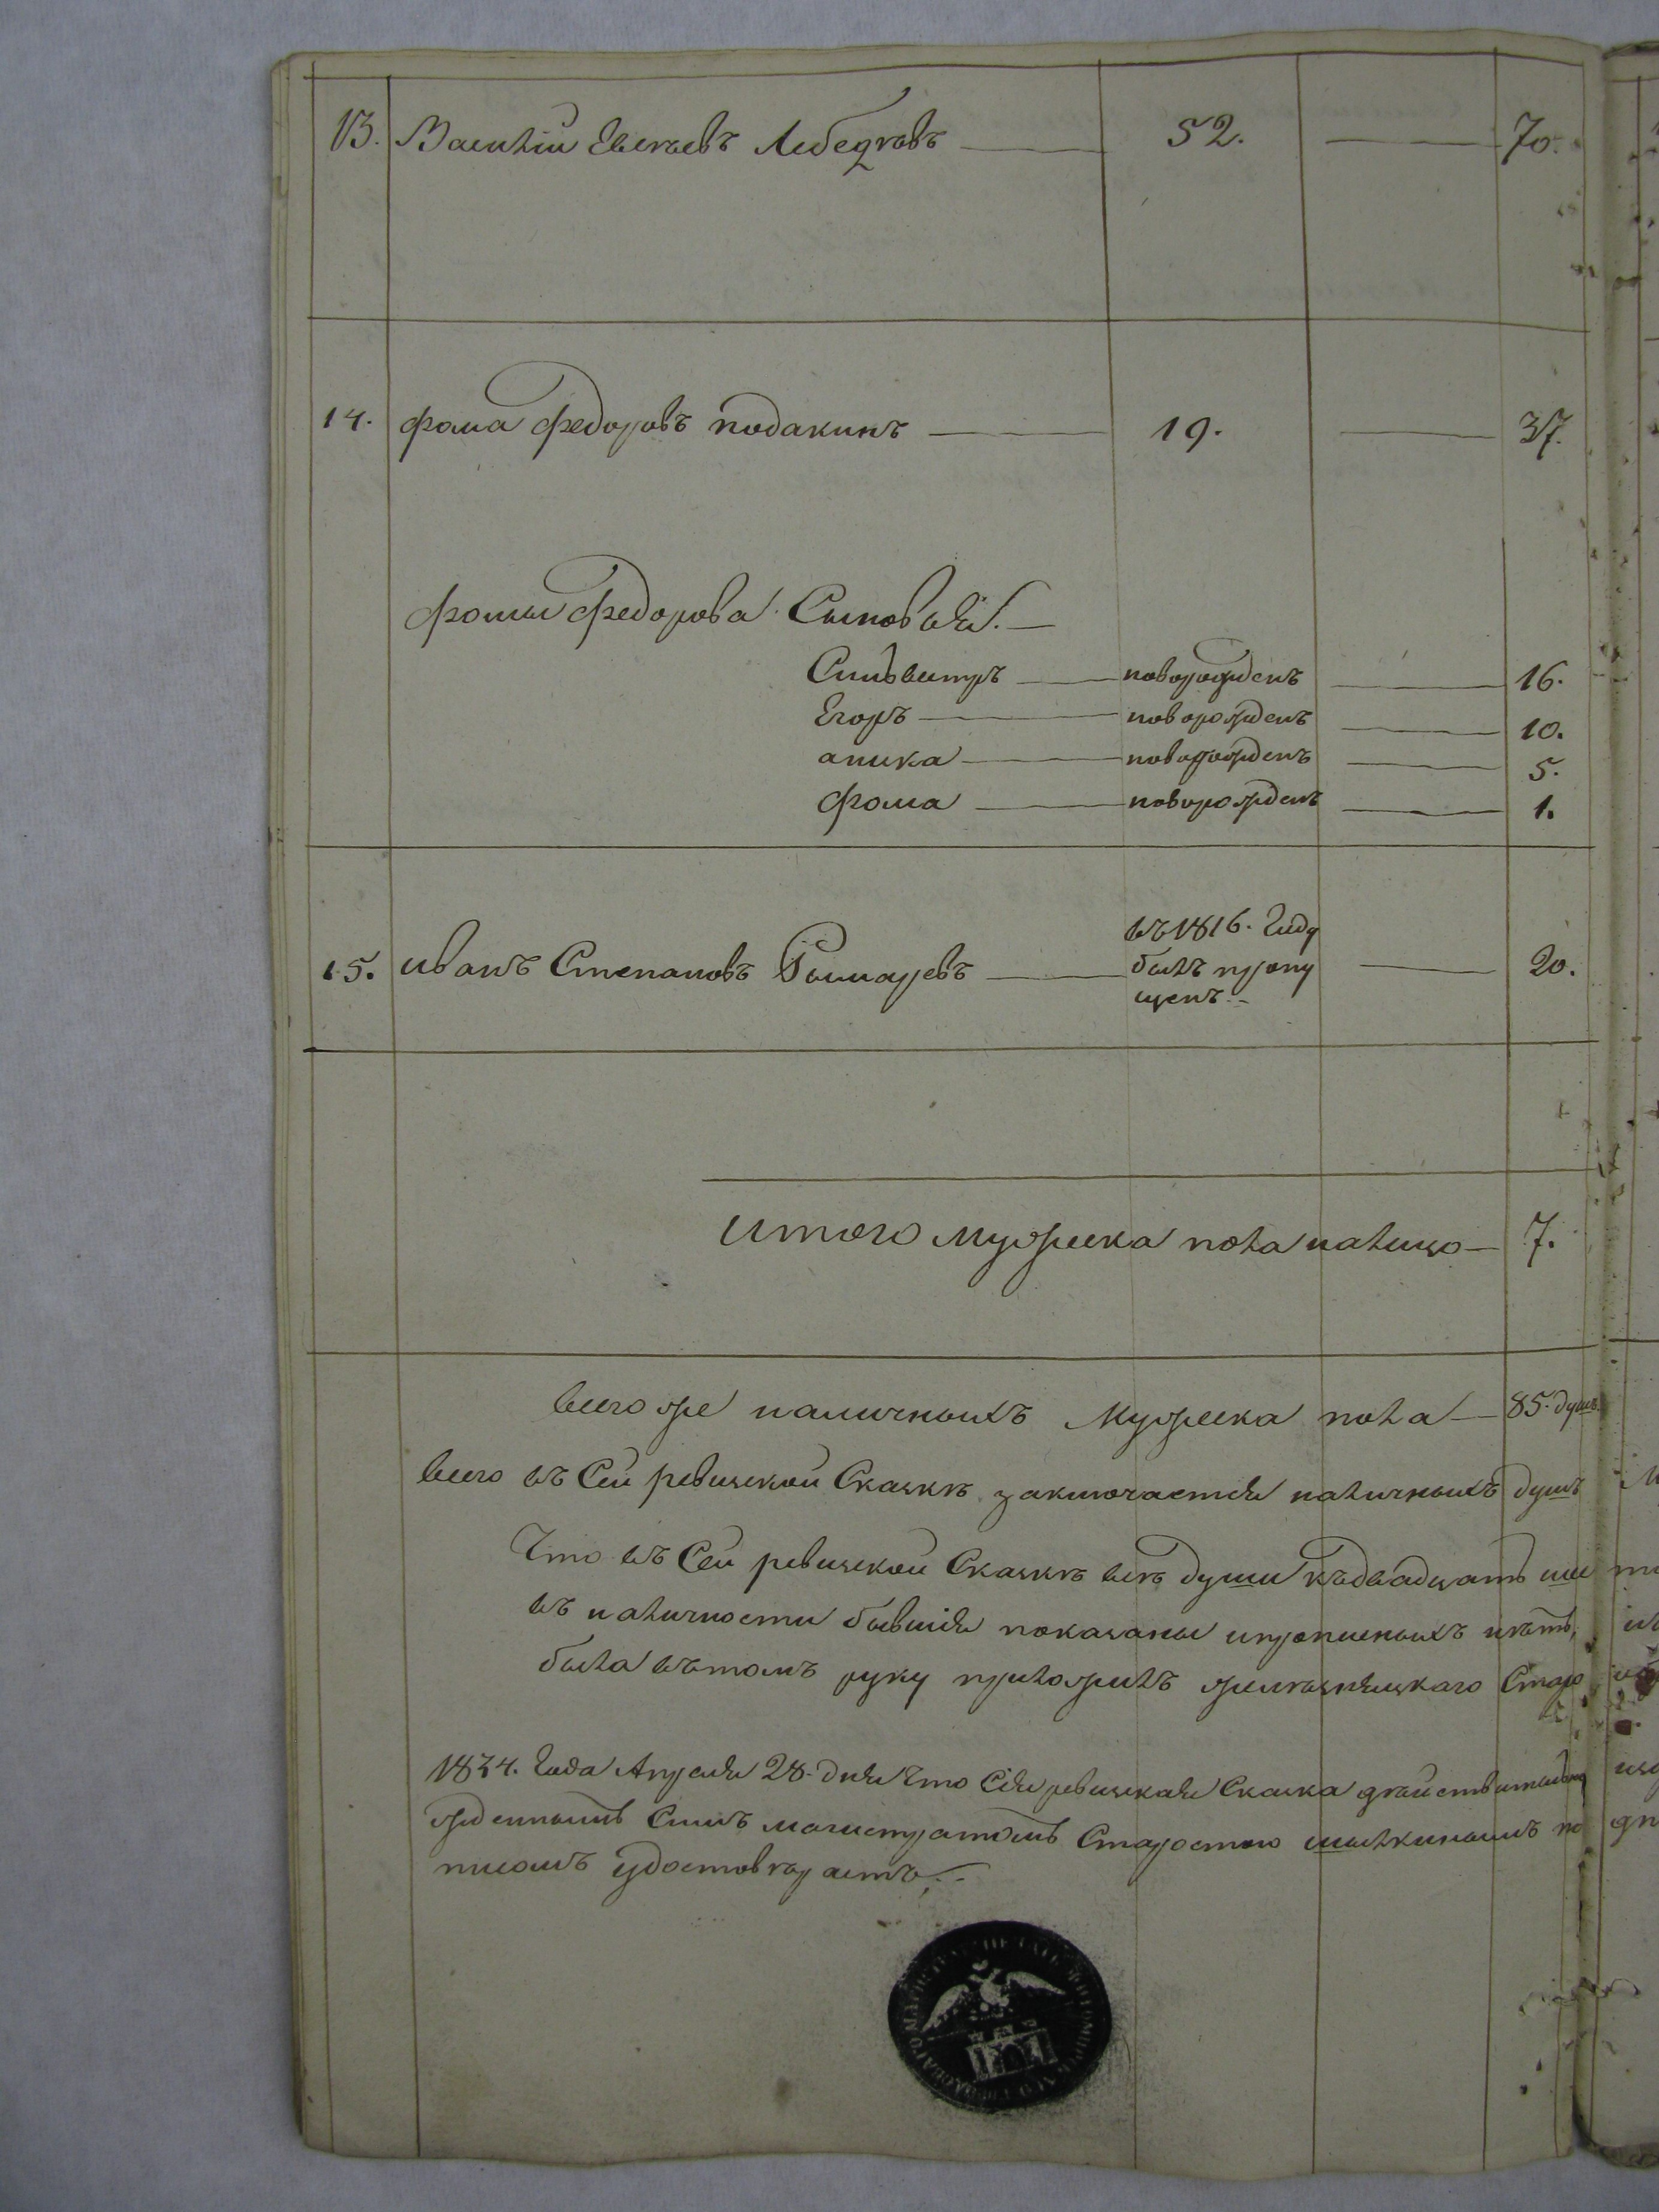 13. Василiй Евсѣевъ Лебедковъ — 52. — 70.
14. фома федоровъ подакинъ — 19. — 37.
фомы федорова Сыновья. —
Сильвестръ — новорожденъ — 16.
Егоръ — новорожденъ — 10.
аника — новорожденъ — 5.
фома — новорожденъ — 1.
въ 1816. Году
15. иванъ Степановъ — былъ пропу — 20.
щенъ. –
итого мужеска пола налицо — 7.
всего же наличныхъ мужеска пола — 85. душъ.
всего въ Сей ревизской Сказкѣ заключается наличныхъ душъ
Что въ Сей ревизской Сказкѣ всѣ души къ двадцать
въ наличности бывшiя показаны и прописныхъ нѣтъ,
была въ томъ руку приложилъ Старо
1834. Года Апреля 28. дня Что Сiя ревизская Сказка действительно
жденнымъ Симъ магистратомъ Старостою по
писомъ удостовѣраетъ. –